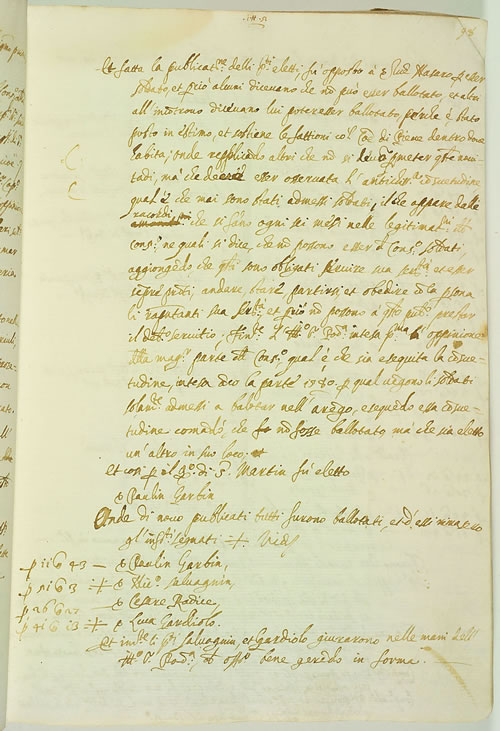 Et fatta la publicat.ne delli p.ti eletti, fu opposto à s Lud.o Nasaro p esser
soldato, et p ciò alcuni dicevano che nō può esser ballotato, et altri
all'incōtrono dicevano lui poteresser ballotato, perche è stato
posto in estimo, et sostiene le fattioni cō 'l Cō.e di Pieve dentro dove
habita; onde repplicādo altri che nō si deve pmeter q.te novi
tadi, mà che deve esser osservata l'antichiss.a cōsuetudine
qual è che mai sono stati admessi soldati, il che appare dalle
racordi
che si fāno ogni sei mesi nelle legitimat.ni del
Cons.o ne quali si dice, che nō possono esser di Cons.o soldati,
aggiongēdo che q.ti sono obligati servire sua Ser.tà et esser
sempre prōti, andare, stare, partirsi, et obedire cō la psona
li rapntanti sua Ser.tà, et p ciò nō possono à q.to pub.o prestar
il debito servitio, Fin.te l' Ill.mo S.r Pod.à intesa p.ma l'oppinione
della mag.r parte del Cons.o qual è che sia eseguita la cōsue-
tudine, intesa āco la parte 1580. p qual vēgono li soldati
solam.te admessi a balotar nell'arēgo, eseguēdo essa cōsue-
tudine comādò, che nō fosse ballotato, mà che sia eletto
un'altro in suo loco.
et cosi p il q.r di S. Martin fu eletto
s Paulin Garbin
Onde di novo publicati tutti furono ballotati, et d'essi rimasero
gl'infr.ti signati -:+ Vidz
p 11 6 43 — s Paulin Garbin,
p 51 6 3 -:+ s Nic.o Salvagnin,
p 26 6 27 — s Cesare Radice,
p 41 6 13 -:+ s Luca Gardiolo.
Et im.te li p.ti Salvagnin, et Gardiolo giurarono nelle mani dell'
Ill.mo S.r Pod.à de off.o bene gerēdo in forma.